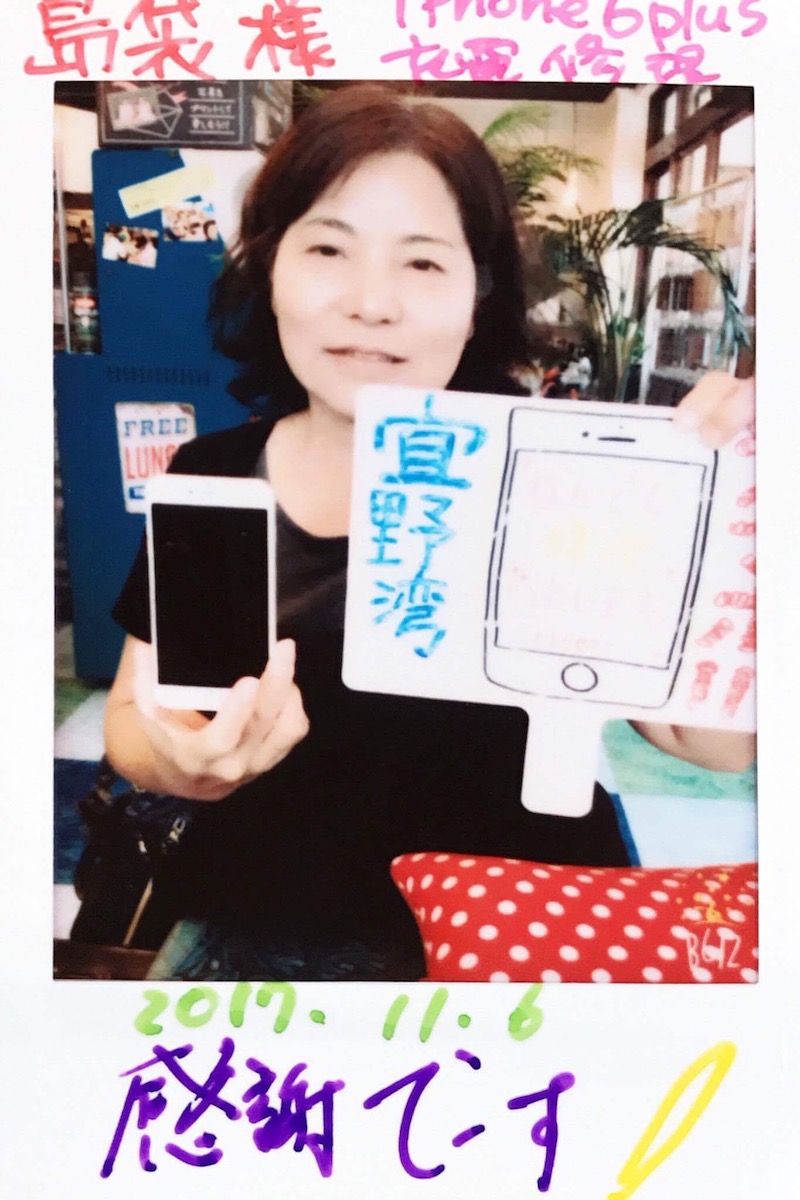 島袋様
iPhone6plus
充電修理
FREE
LUNC
宜野湾
B612
2017.11.6
感謝です!